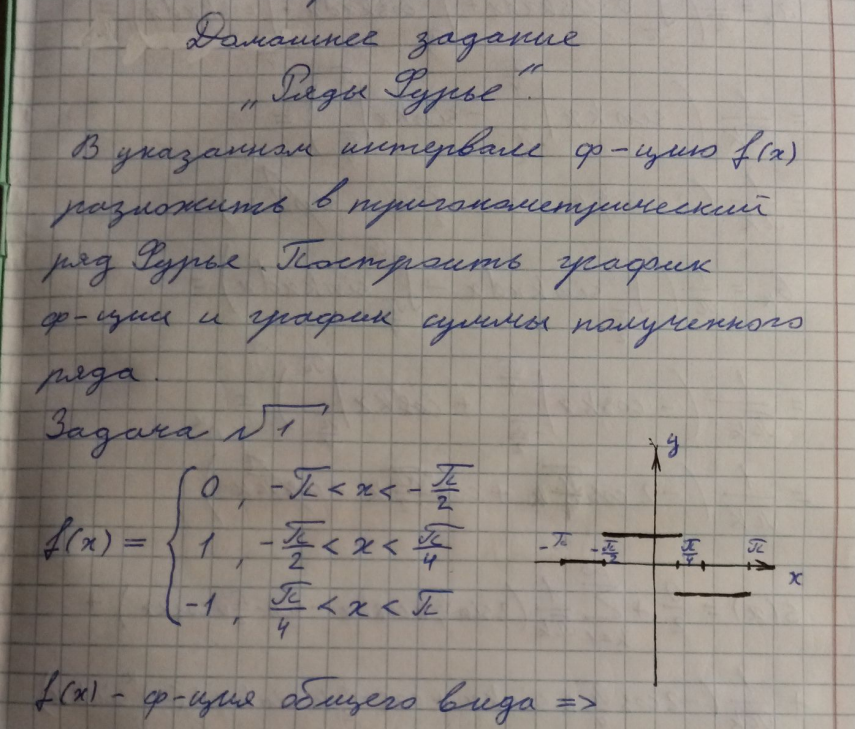 Домашнее задание
„Ряды Фурье".
В указанном интервале ф-цию f(x)
разложить в тригонометрический
ряд Фурье. Построить график
ф-ции и график суммы полученного
ряда.
Задача №1
f(x) = { 0, -π < x < -π/2
1, -π/2 < x < π/4
-1, π/4 < x < π
y
-π -π/2 π/4 π
x
f(x) - ф-ция общего вида =>